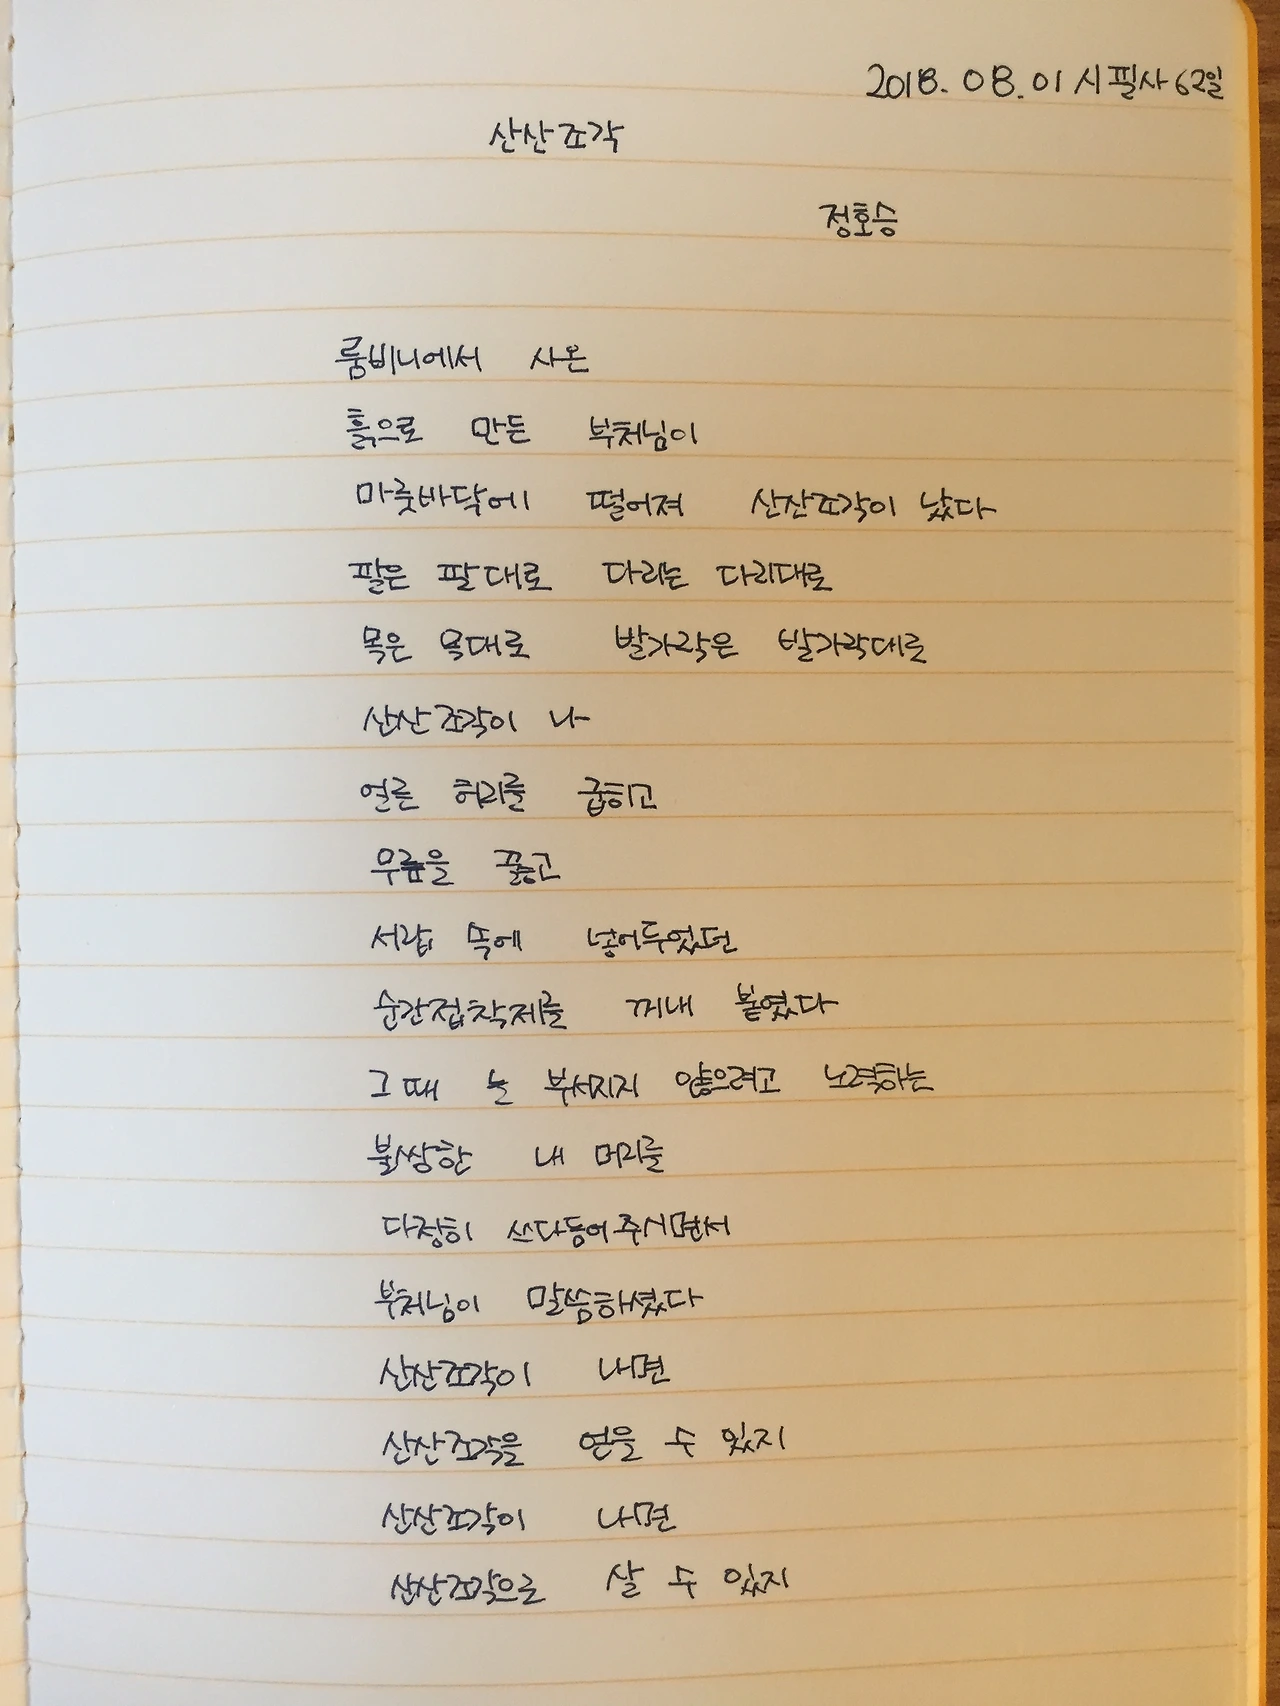 2018. 08. 01 시필사 62일
산산조각
정호승
룸비니에서 사온
흙으로 만든 부처님이
마룻바닥에 떨어져 산산조각이 났다
팔은 팔대로 다리는 다리대로
목은 목대로 발가락은 발가락대로
산산조각이 나
얼른 허리를 굽히고
무릎을 꿇고
서랍 속에 넣어두었던
순간접착제를 꺼내 붙였다
그 때 늘 부서지지 않으려고 노력하는
불쌍한 내 머리를
다정히 쓰다듬어 주시면서
부처님이 말씀하셨다
산산조각이 나면
산산조각을 얻을 수 있지
산산조각이 나면
산산조각으로 살 수 있지